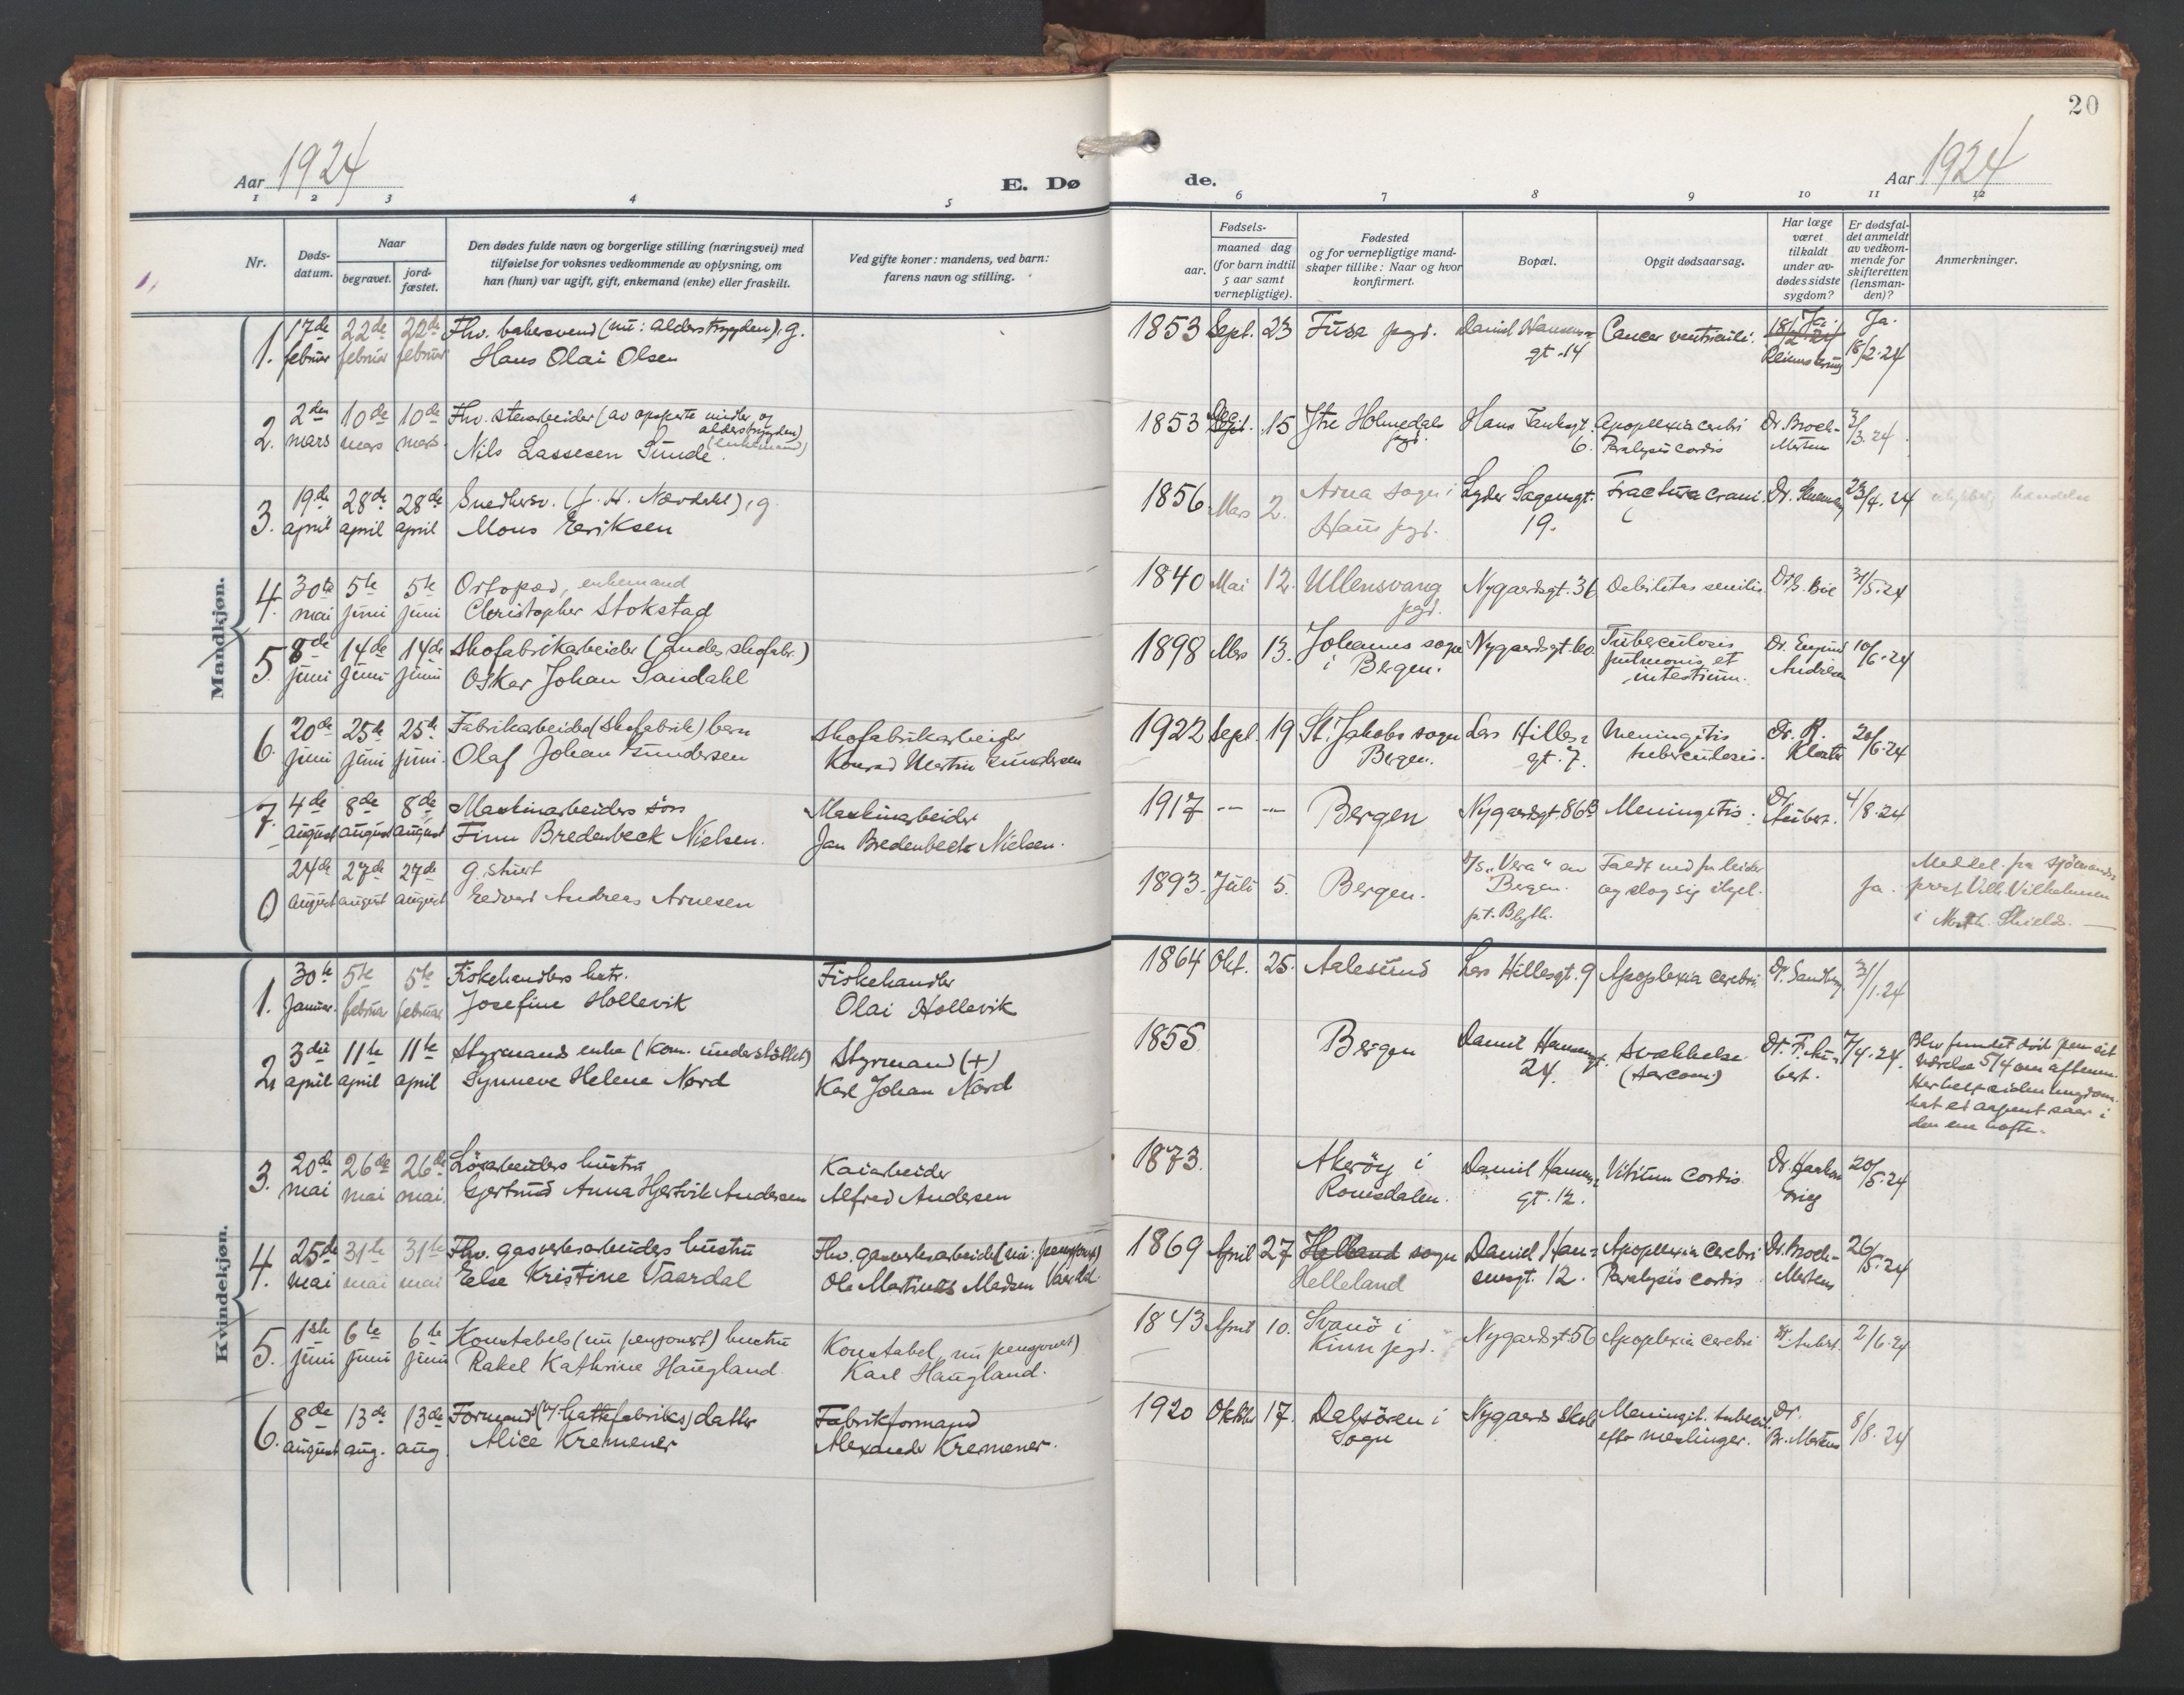 20
Aar 1924
E. Dø
de.
Aar 1924
1 2 3 4 5 6 7 8 9 10 11 12
Nr.
Døds-
datum.
Naar
begravet.
jord-
fæstet.
Den dødes fulde navn og borgerlige stilling (næringsvei) med
tilføielse for voksnes vedkommende av oplysning, om
han (hun) var ugift, gift, enkemand (enke) eller fraskilt.
Ved gifte koner: mandens, ved barn:
farens navn og stilling.
Fødsels-
aar.
maaned dag
(for barn indtil
5 aar samt
vernepligtige).
Fødested
og for vernepligtige mand-
skaper tillike: Naar og hvor
konfirmert.
Bopæl.
Opgit dødsaarsag.
Har læge
været
tilkaldt
under av-
dødes sidste
sygdom?
Er dødsfal-
det anmeldt
av vedkom-
mende for
skifteretten
(lensman-
den)?
Anmerkninger.
Mandkjøn.
1. 17de februar 22de februar 22de februar Fhv. bakersvend (nu: alderstrygden), g.
Hans Olai Olsen
1853 Sept. 23 Fusa pgd. Daniel Hansens-
gt. 14 Cancer ventriculi. Ja. 18/2-24 Ja.
18/2-24
2. 2den mars 10de mars 10de mars. Fhv. stenarbeider (av opsparte midler og
alderstrygden)
(enkemand)
Nils Lassesen Sunde.
1853 Dec. 15 Ytre Holmedals
pgd. Hans Tanksgt.
6. Apoplexia cerebri
Paralysis cordis Dr. Broch-
Mertens 3/3.24
3. 19de april 28de april 28de april Snedkersv. (J. H. Nævdahl), g.
Mons Eriksen
1856 Mars 2. Arna sogn i
Haus pgd. Lyder Sagensgt.
19. Fractura cranii Dr. 23/4.24 hændelse
4. 30te mai 5te juni 5te juni Ortopæd, enkemand
Christopher Stokstad
1840 Mai 12. Ullensvang
pgd. Nygaardsgt. 36 Debilitas senilis 31/5.24
5. 8de juni 14de juni 14de juni Skofabrikarbeider (Landes skofabr.)
Oskar Johan Sandahl
1898 Mars 13. Johannes sogn
i Bergen. Nygaardsgt. Tuberculosis
pulmonis et
intestinum. Dr.
Andresen 10/6.24
6. 20de juni 25de juni 25de juni. Fabrikarbeiders (skofabrik) barn
Olaf Johan Gundersen
Skofabrikarbeider
Konrad Martin Gundersen
1922 Sept. 19 St. Jakobs sogn
Bergen. Lars Hilles-
gt. 7. Meningitis
tuberculosis. Dr. R. 20/6.24
7. 4de august 8de august 8de august Maskinarbeiders søn
Finn Bredenbeck Nielsen.
Maskinarbeider
Jan Bredenbeck Nielsen.
1917 -- -- Bergen Nygaardsgt. 86B Meningitis. Dr. 4/8.24
0 24de august 27de august 27de august g. stuert
Edvard Andreas Arnesen
1893. Juli 5. Bergen. D/S "Vera" av
Bergen.
p.t. Blyth. Faldt ned fra leider
og slog sig ihjel. Ja. Meddel. fra sjømands-
prest Vilh. Vilhelmsen
i North Shields. —
Kvindekjøn.
1. 30te januar. 5te februar 5te februar Fiskehandlers hstr.
Josefine Hollevik
Fiskehandler
Olai Hollevik
1864 Okt. 25. Aalesund Lars Hillesgt. 9 Apoplexia cerebri Dr. Sandberg 31/1.24
2. 3die april 11te april 11te april Styrmands enke (Kom. understøttet)
Synneve Helene Nord
Styrmand (+)
Karl Johan Nord
1855. Bergen Daniel Hansensgt.
24. Svækkelse
(Sarcom.) Dr. F. 7/4.24. Blev fundet død paa sit
værelse 5/4 om aftenen.
Har helt siden ungdom.
hat et aapent saar i
den ene hofte.
3. 20de mai 26de mai 26de mai. Løsarbeiders hustru
Gjertrud Anna Hjertvik Andersen
Kaiarbeider
Alfred Andersen
1873. Akerøy i
Romsdalen. Daniel Hansens-
gt. 12. Vitium cordis. Dr. Haakon
Grieg 20/5.24
4. 25de mai 31te mai 31te mai Fhv. gasverksarbeiders hustru
Else Kristine Vaardal
Fhv. gasverksarbeider (nu: pensjonist)
Ole Martinus Madsen Vaardal.
1869 April 27 Helland sogn
Helleland Daniel Han-
sensgt. 12. Apoplexia cerebri
Paralysis cordis Dr. Broch-
Mertens 26/5.24
5. 1ste juni 6te juni 6te juni Konstabels (nu pensjonert) hustru
Rakel Kathrine Haugland.
Konstabel, nu pensjonert)
Karl Haugland.
1843 April 10. Svanö i
Kinn pgd. Nygaardsgt. 56 Apoplexia cerebri 2/6.24
6. 8de august 13de aug. 13de aug. Formands (v/ Hattefabriks) datter
Alice Kremener
Fabrikformand
Alexander Kremener.
1920 Oktober 17. Dalsören i
Sogn Nygaards Skole Meningit. tubercul.
efter meslinger. Dr.
Br. Mertens 8/8.24